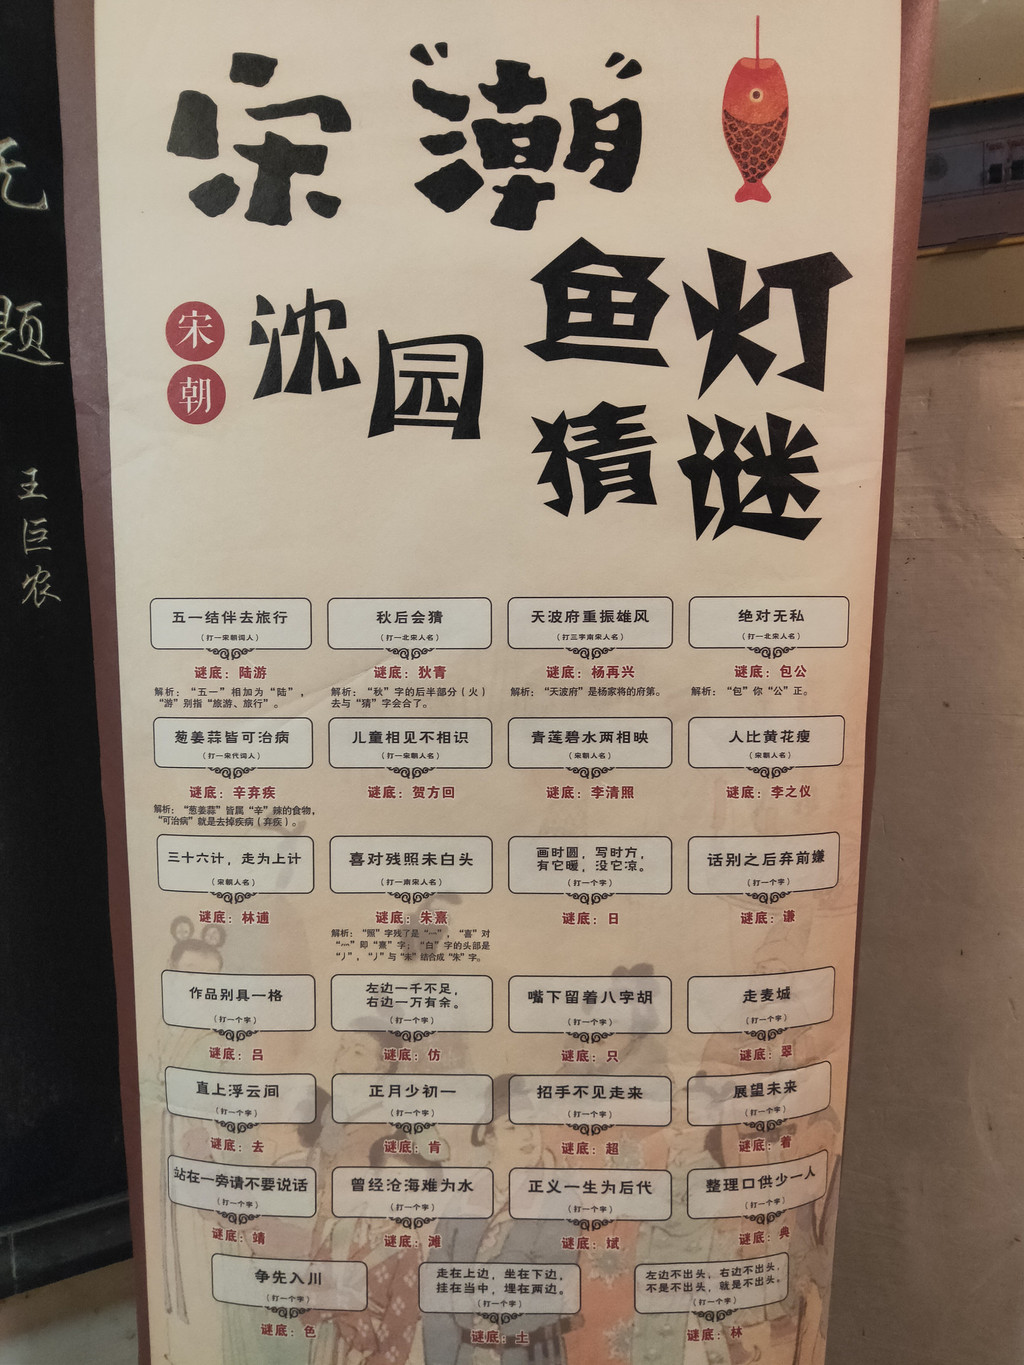 宋“潮”
宋朝
沈园
鱼灯
猜谜
五一结伴去旅行
（打一宋朝词人）
谜底：陆游
解析：“五一”相加为“陆”，
“游”别指“旅游、旅行”。
秋后会猜
（打一北宋人名）
谜底：狄青
解析：“秋”字的后半部分（火）
去与“猜”字会合了。
天波府重振雄风
（打三字南宋人名）
谜底：杨再兴
解析：“天波府”是杨家将的府第。
绝对无私
（打一北宋人名）
谜底：包公
解析：“包”你“公”正。
葱姜蒜皆可治病
（打一宋代词人）
谜底：辛弃疾
解析：“葱姜蒜”皆属“辛”辣的食物，
“可治病”就是去掉疾病（弃疾）。
儿童相见不相识
（打一宋朝人名）
谜底：贺方回
青莲碧水两相映
（宋朝人名）
谜底：李清照
人比黄花瘦
（宋朝人名）
谜底：李之仪
三十六计，走为上计
（宋朝人名）
谜底：林逋
喜对残照未白头
（打一南宋人名）
谜底：朱熹
解析：“照”字残了是“灬”，“喜”对
“灬”即“熹”字；“白”字的头部是
“丿”，“丿”与“未”结合成“朱”字。
画时圆，写时方，
有它暖，没它凉。
（打一个字）
谜底：日
话别之后弃前嫌
（打一个字）
谜底：谦
作品别具一格
（打一个字）
谜底：吕
左边一千不足，
右边一万有余。
（打一个字）
谜底：仿
嘴下留着八字胡
（打一个字）
谜底：只
走麦城
（打一个字）
谜底：翠
直上浮云间
（打一个字）
谜底：去
正月少初一
（打一个字）
谜底：肯
招手不见走来
（打一个字）
谜底：超
展望未来
（打一个字）
谜底：着
站在一旁请不要说话
（打一个字）
谜底：靖
曾经沧海难为水
（打一个字）
谜底：滩
正义一生为后代
（打一个字）
谜底：斌
整理口供少一人
（打一个字）
谜底：典
争先入川
（打一个字）
谜底：色
走在上边，坐在下边，
挂在当中，埋在两边。
（打一个字）
谜底：土
左边不出头，右边不出头，
不是不出头，就是不出头。
（打一个字）
谜底：林
题
王巨农